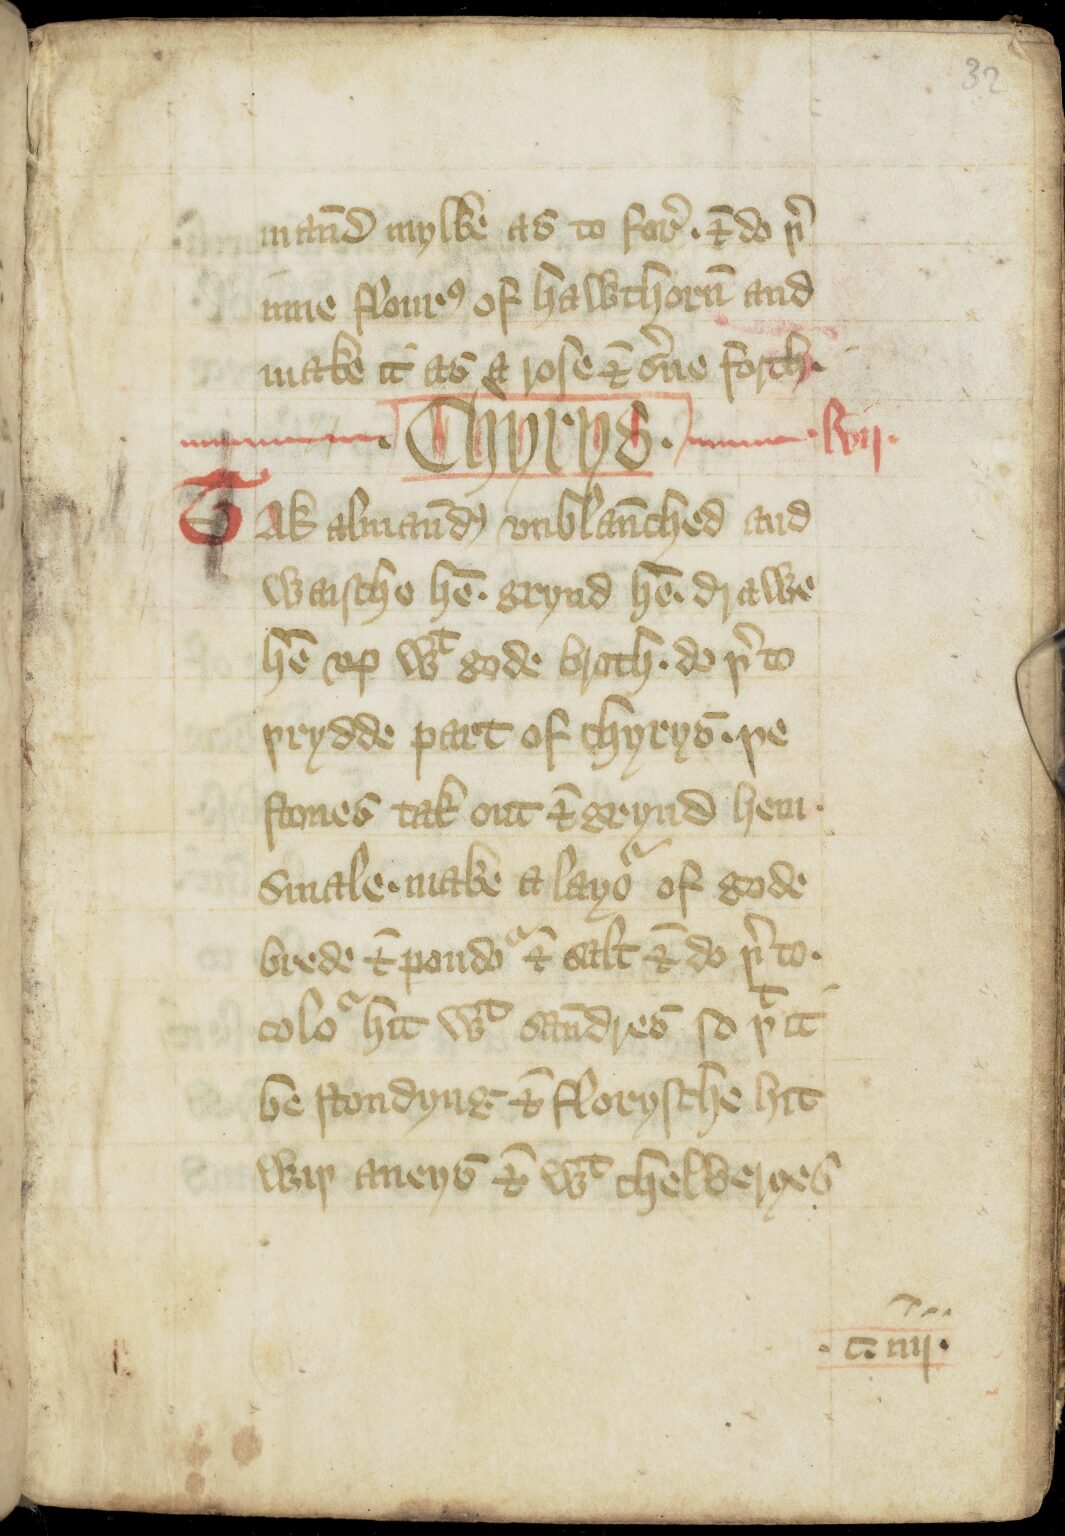 32
maūd mylke as to forͬ. & do þͬ
inne floureꝰ of hawthorn̄ and
make it as a rose & sͬue forth.
. Chyrys. . lvij.
Tak almaūdꝭ vnblāched and
waische hē. grynd hē. drawe
hē vp wᵗ gode broth. do þͬto
þrydde part of chyrys. þe
stones tak out & grynd hem.
smale. make a layoͬ of gode
brede & poudoͬ & salt & do þͬto.
coloͬ hit wᵗ saūdres so þᵗ it
be stondyng & florysche hit
wiþ aneys & wᵗ chelberyes
. c. iiij.